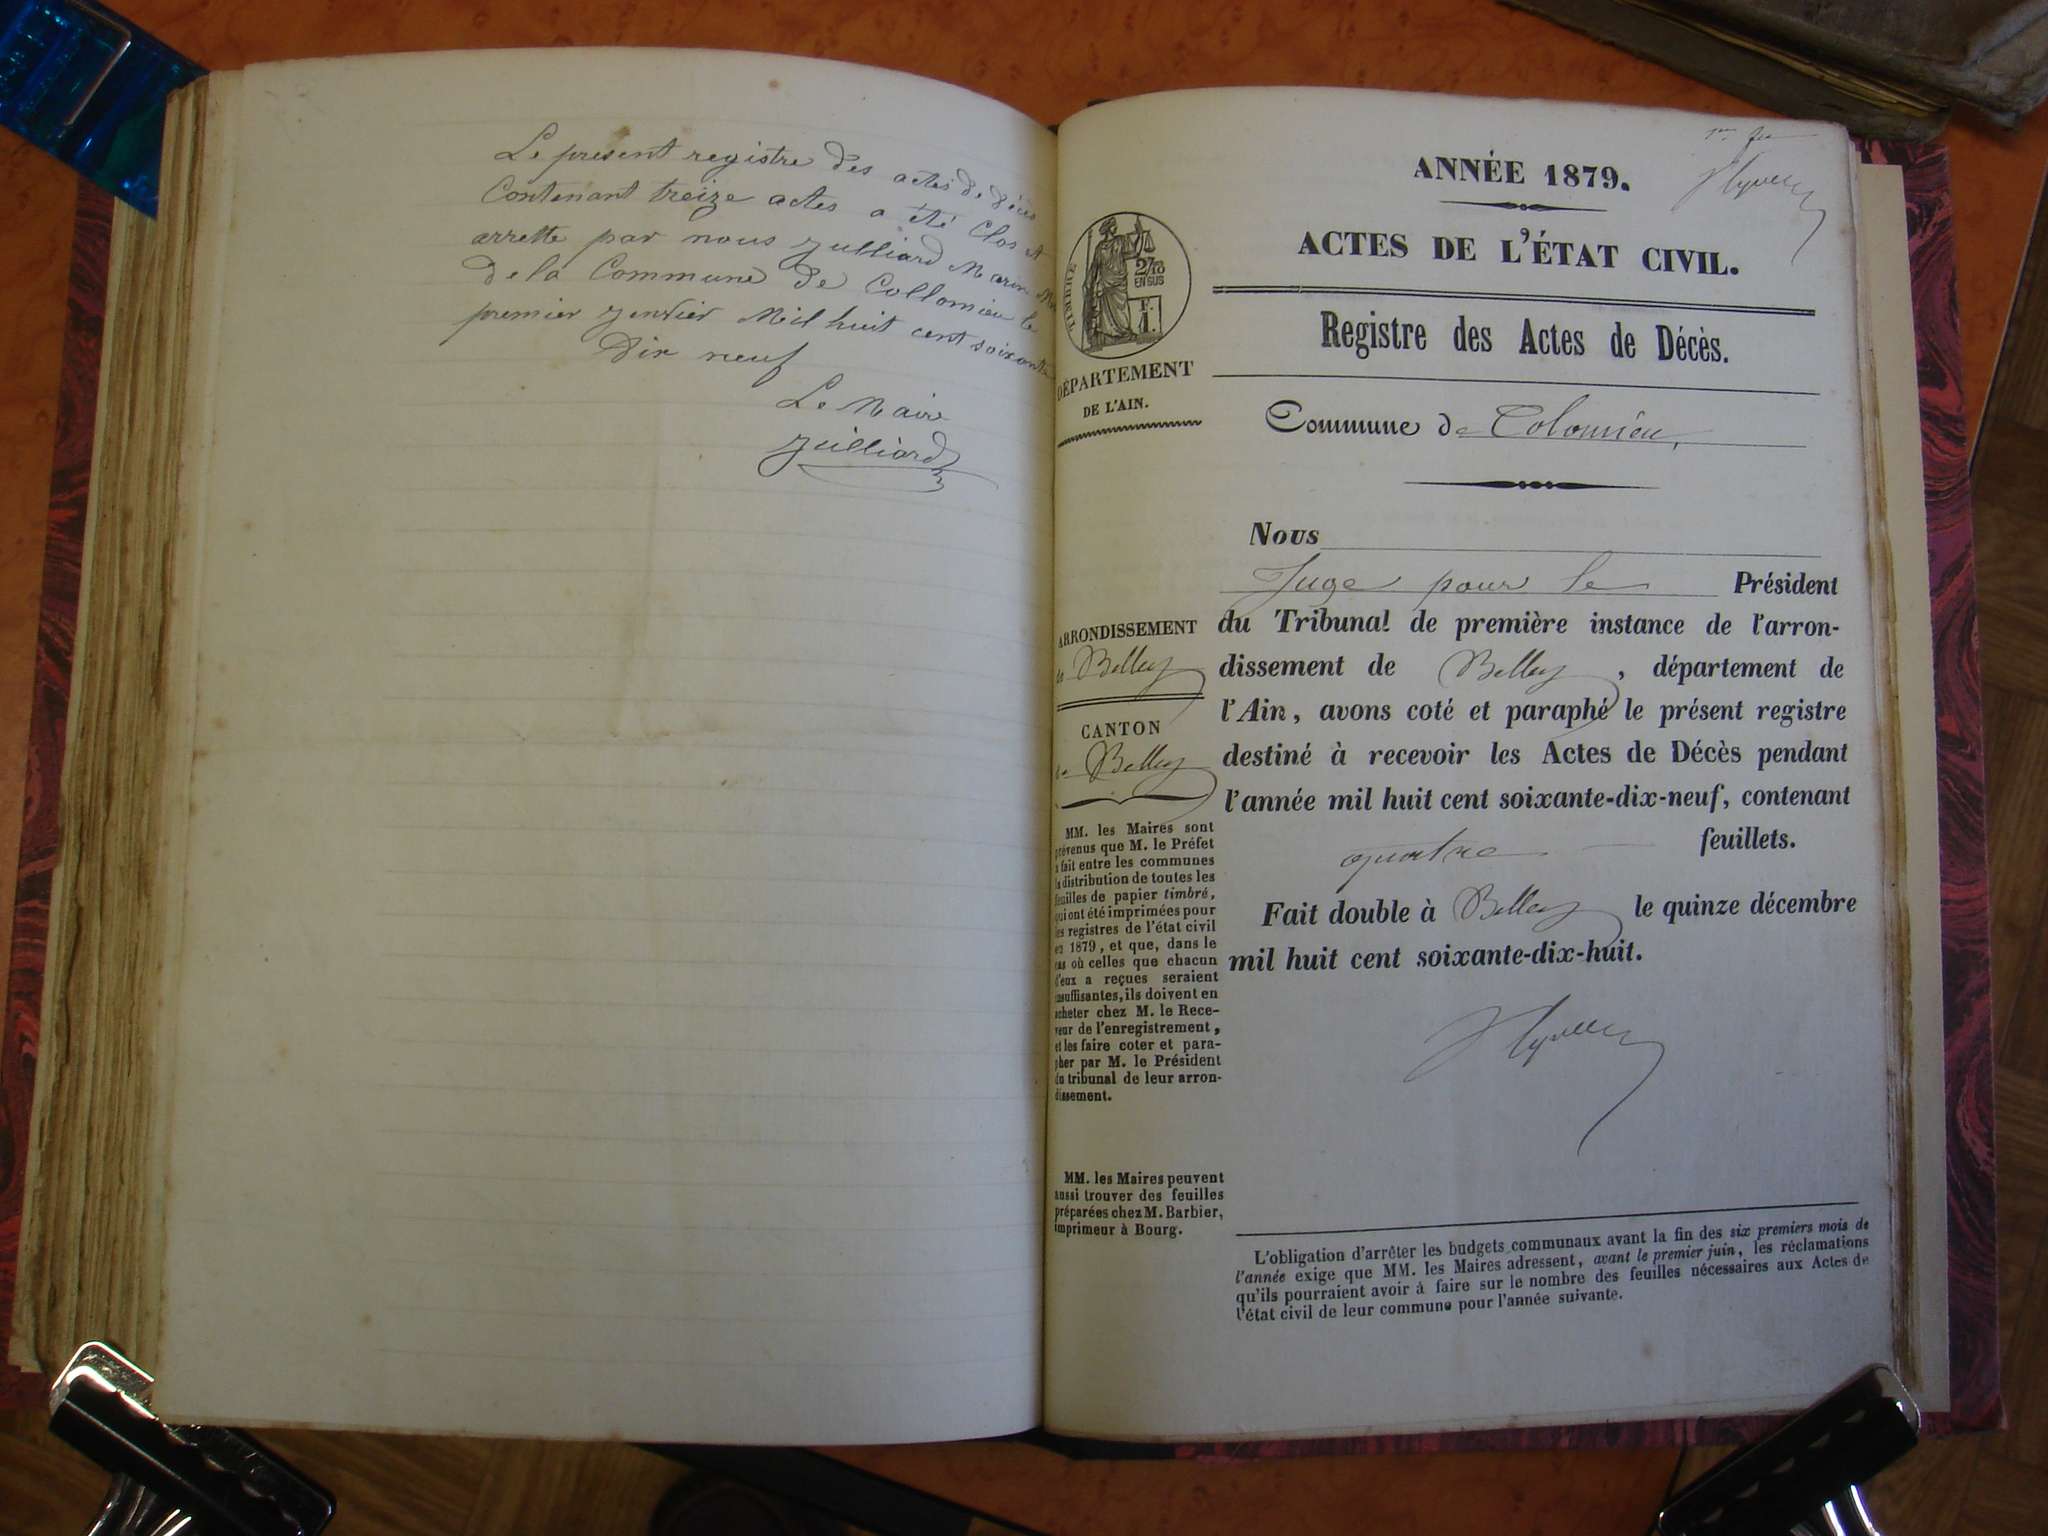 Le present registre des actes de décès
Contenant treize actes a été Clos et
arrette par nous Julliard Marin
de la Commune de Collomieu le
premier Janvier Mil huit cent soixante
Dix neuf
Le Maire
Julliard
ANNÉE 1879.
ACTES DE L'ÉTAT CIVIL.
TIMBRE
2/10
EN SUS
1 F.
Registre des Actes de Décès.
DÉPARTEMENT
DE L'AIN.
Commune de Colomieu,
Nous
Juge pour le Président
du Tribunal de première instance de l'arron-
dissement de Belley, département de
l'Ain, avons coté et paraphé le présent registre
destiné à recevoir les Actes de Décès pendant
l'année mil huit cent soixante-dix-neuf, contenant
quatre feuillets.
Fait double à Belley le quinze décembre
mil huit cent soixante-dix-huit.
ARRONDISSEMENT
de Belley
CANTON
de Belley
MM. les Maires sont
prévenus que M. le Préfet
a fait entre les communes
la distribution de toutes les
feuilles de papier timbré,
qui ont été imprimées pour
les registres de l'état civil
en 1879, et que, dans le
cas où celles que chacun
d'eux a reçues seraient
insuffisantes, ils doivent en
acheter chez M. le Rece-
veur de l'enregistrement,
et les faire coter et para-
pher par M. le Président
du tribunal de leur arron-
dissement.
MM. les Maires peuvent
aussi trouver des feuilles
préparées chez M. Barbier,
imprimeur à Bourg.
L'obligation d'arrêter les budgets communaux avant la fin des six premiers mois de
l'année exige que MM. les Maires adressent, avant le premier juin, les réclamations
qu'ils pourraient avoir à faire sur le nombre des feuilles nécessaires aux Actes de
l'état civil de leur commune pour l'année suivante.